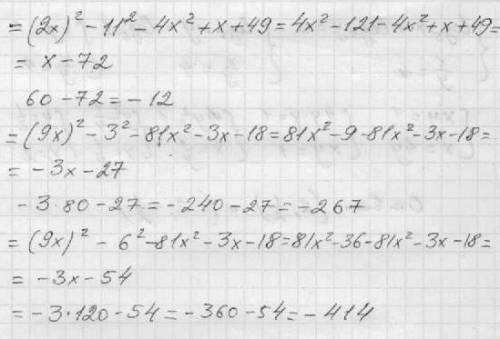 = (2x)² - 11² - 4x² + x + 49 = 4x² - 121 - 4x² + x + 49 =
= x - 72
60 - 72 = - 12
= (9x)² - 3² - 81x² - 3x - 18 = 81x² - 9 - 81x² - 3x - 18 =
= - 3x - 27
- 3 · 80 - 27 = - 240 - 27 = - 267
= (9x)² - 6² - 81x² - 3x - 18 = 81x² - 36 - 81x² - 3x - 18 =
= - 3x - 54
= - 3 · 120 - 54 = - 360 - 54 = - 414